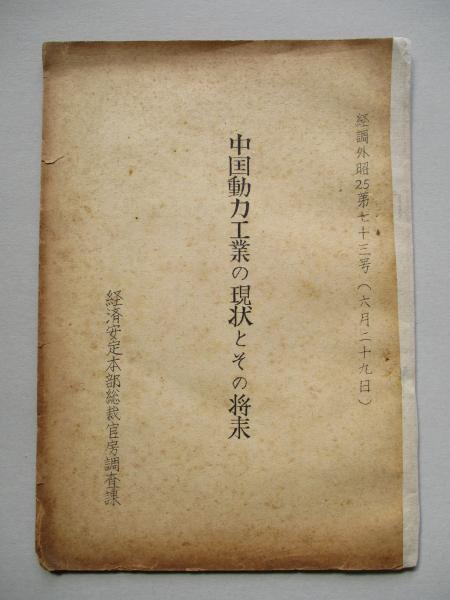 経調外昭25第七十三号(六月二十九日)
中国動力工業の現状とその将来
経済安定本部総裁官房調査課